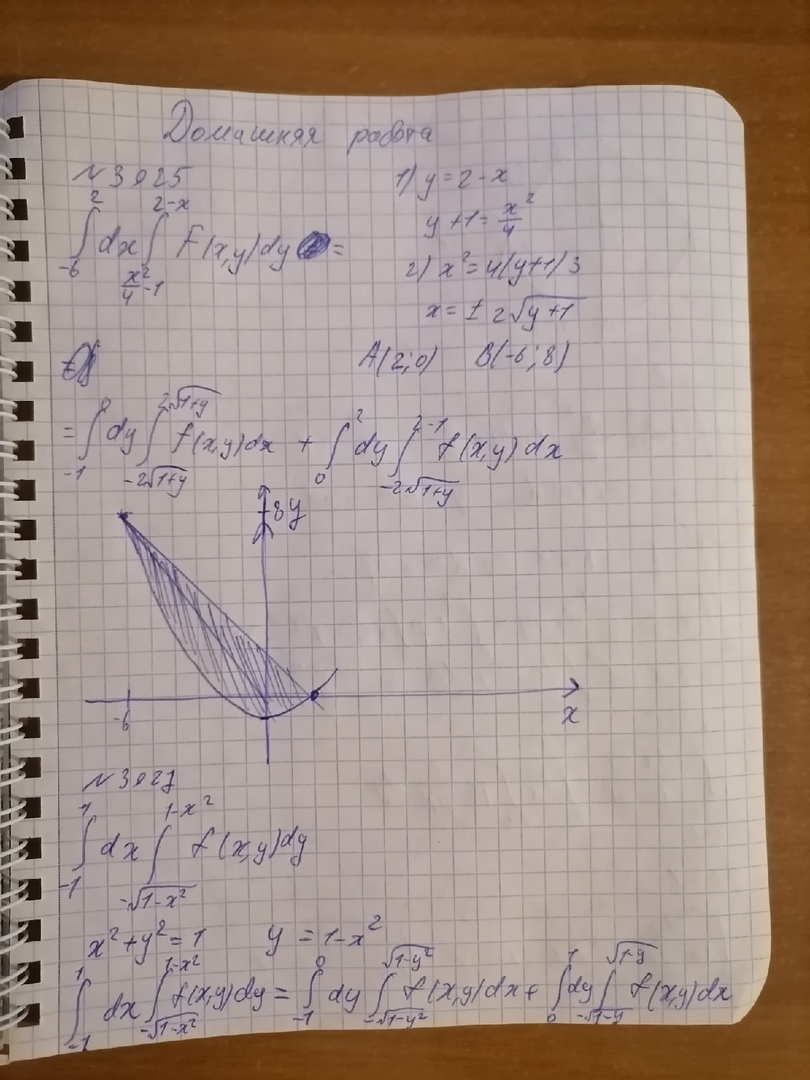 Домашняя работа
№ 3925
∫_{-6}^{2} dx ∫_{x²/4-1}^{2-x} f(x,y)dy =
1) y = 2-x
y+1 = x²/4
2) x² = 4(y+1)3
x = ± 2√(y+1)
A(2;0) B(-6;8)
= ∫_{-1}^{0} dy ∫_{-2√(1+y)}^{2√(1+y)} f(x,y)dx + ∫_{0}^{2} dy ∫_{-2√(1+y)}^{2-1} f(x,y)dx
8 y
-6
x
№ 3927
∫_{-1}^{1} dx ∫_{-√(1-x²)}^{1-x²} f(x,y)dy
x²+y²=1 y = 1-x²
∫_{-1}^{1} dx ∫_{-√(1-x²)}^{1-x²} f(x,y)dy = ∫_{-1}^{0} dy ∫_{-√(1-y²)}^{√(1-y²)} f(x,y)dx + ∫_{0}^{1} dy ∫_{-√(1-y)}^{√(1-y)} f(x,y)dx